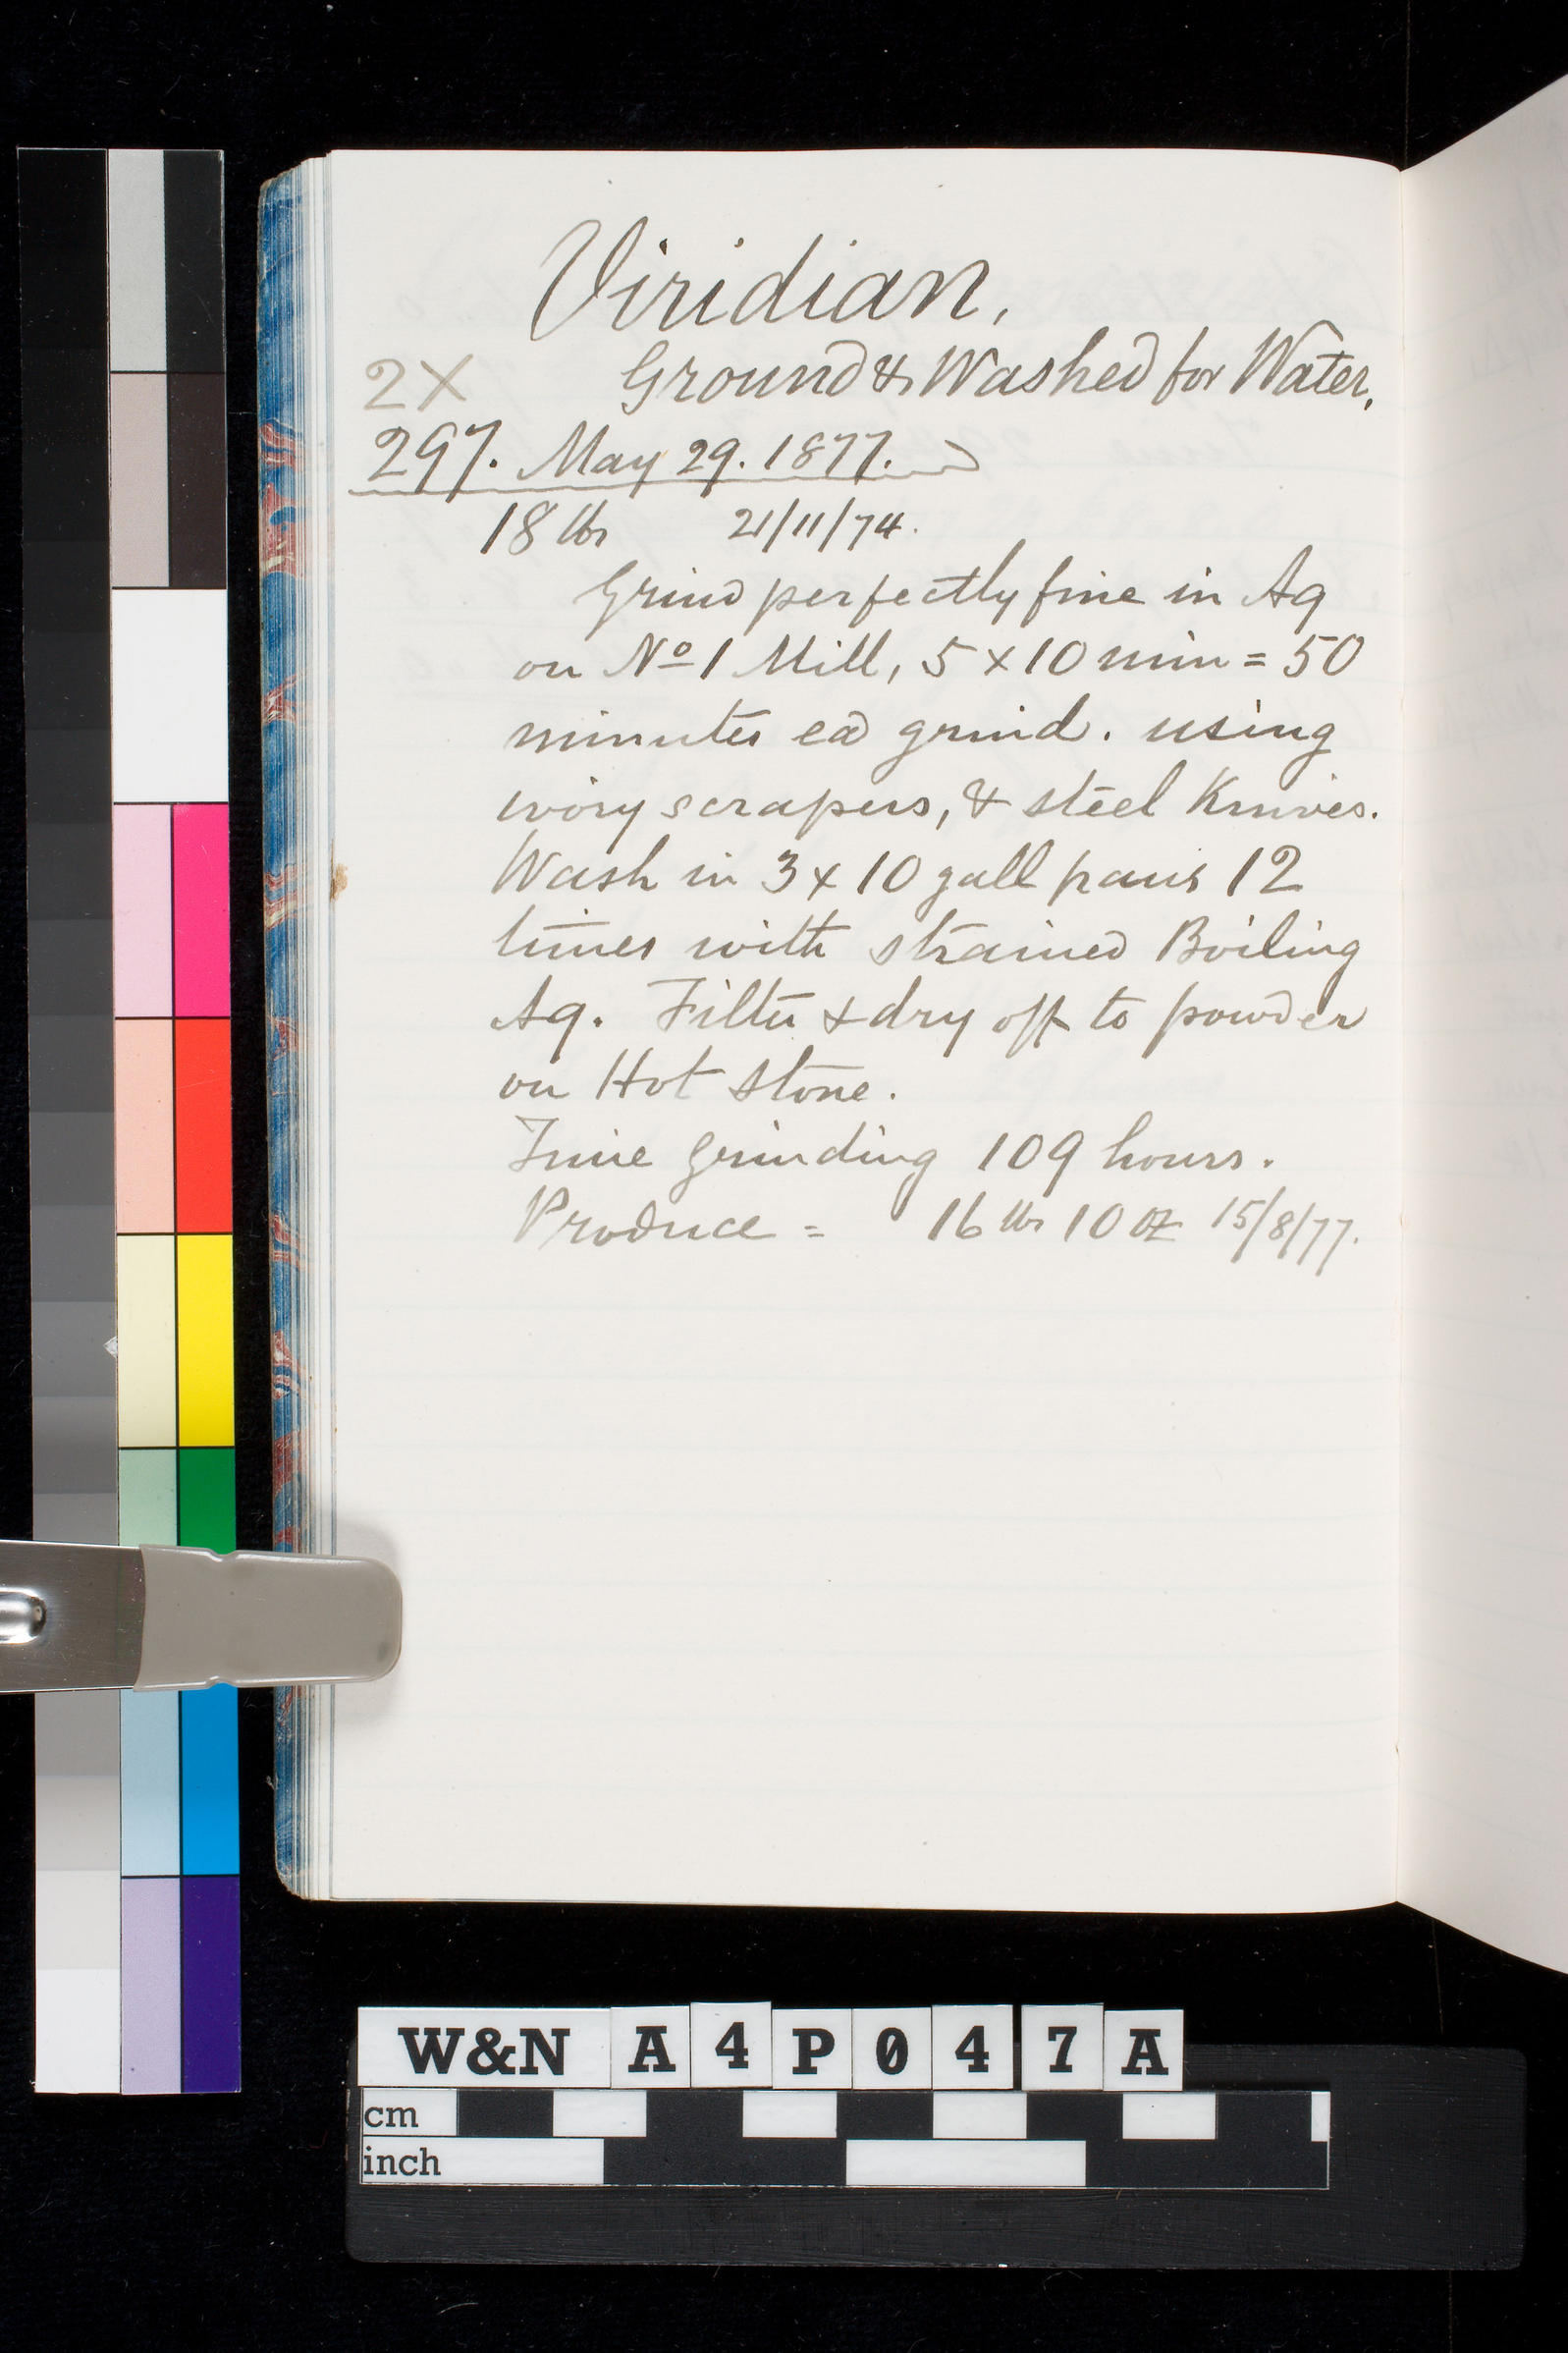 Viridian,
2X Ground & Washed for Water,
297. May 29. 1877.
18 lbs 21/11/74.
Grind perfectly fine in Aq
on Nº 1 Mill, 5 x 10 min = 50
minutes ea grind. using
ivory scrapers, & steel Knives.
Wash in 3 x 10 gall pans 12
times with strained Boiling
Aq. Filter & dry off to powder
on Hot Stone.
Time grinding 109 hours.
Produce = 16 lbs 10 oz 15/8/77.
W&N A4P047A
cm
inch